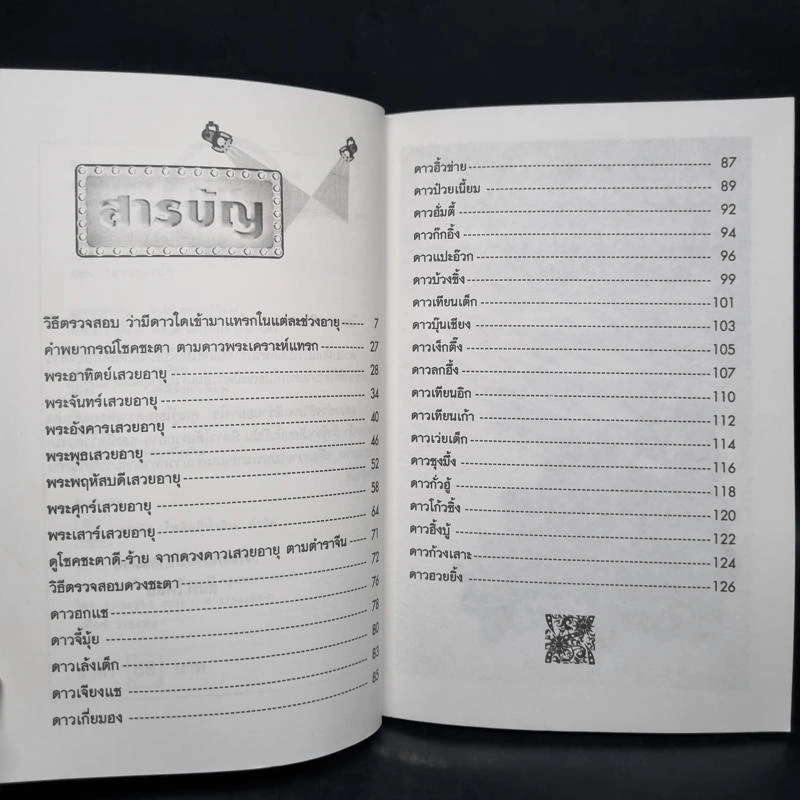 สารบัญ
วิธีตรวจสอบ ว่ามีดาวใดเข้ามาแทรกในแต่ละช่วงอายุ 7
คำพยากรณ์โชคชะตา ตามดาวพระเคราะห์แทรก 27
พระอาทิตย์เสวยอายุ 28
พระจันทร์เสวยอายุ 34
พระอังคารเสวยอายุ 40
พระพุธเสวยอายุ 46
พระพฤหัสบดีเสวยอายุ 52
พระศุกร์เสวยอายุ 58
พระเสาร์เสวยอายุ 64
ดูโชคชะตาดี-ร้าย จากดวงดาวเสวยอายุ ตามตำราจีน 71
วิธีตรวจสอบดวงชะตา 72
ดาวอกแช 76
ดาวจี้มุ้ย 78
ดาวเล้งเต็ก 80
ดาวเจียงแช 83
ดาวเกี่ยมอง 85
ดาวอิ้วข่าย 87
ดาวป่วยเนี้ยม 89
ดาวอั่มตี้ 92
ดาวก๊กอิ้ง 94
ดาวแปะอ๊วก 96
ดาวบ้วงซิ้ง 99
ดาวเทียนเต็ก 101
ดาวบุ๊นเชียง 103
ดาวเง็กตึ๊ง 105
ดาวลกฮึ้ง 107
ดาวเทียนอิก 110
ดาวเทียนเก้า 112
ดาวเว่ยเต็ก 114
ดาวชุงมึ้ง 116
ดาวกั่วอู้ 118
ดาวโก้วซิ้ง 120
ดาวอิ้งบู้ 122
ดาวก้วงเสาะ 124
ดาวฮวยยิ้ง 126